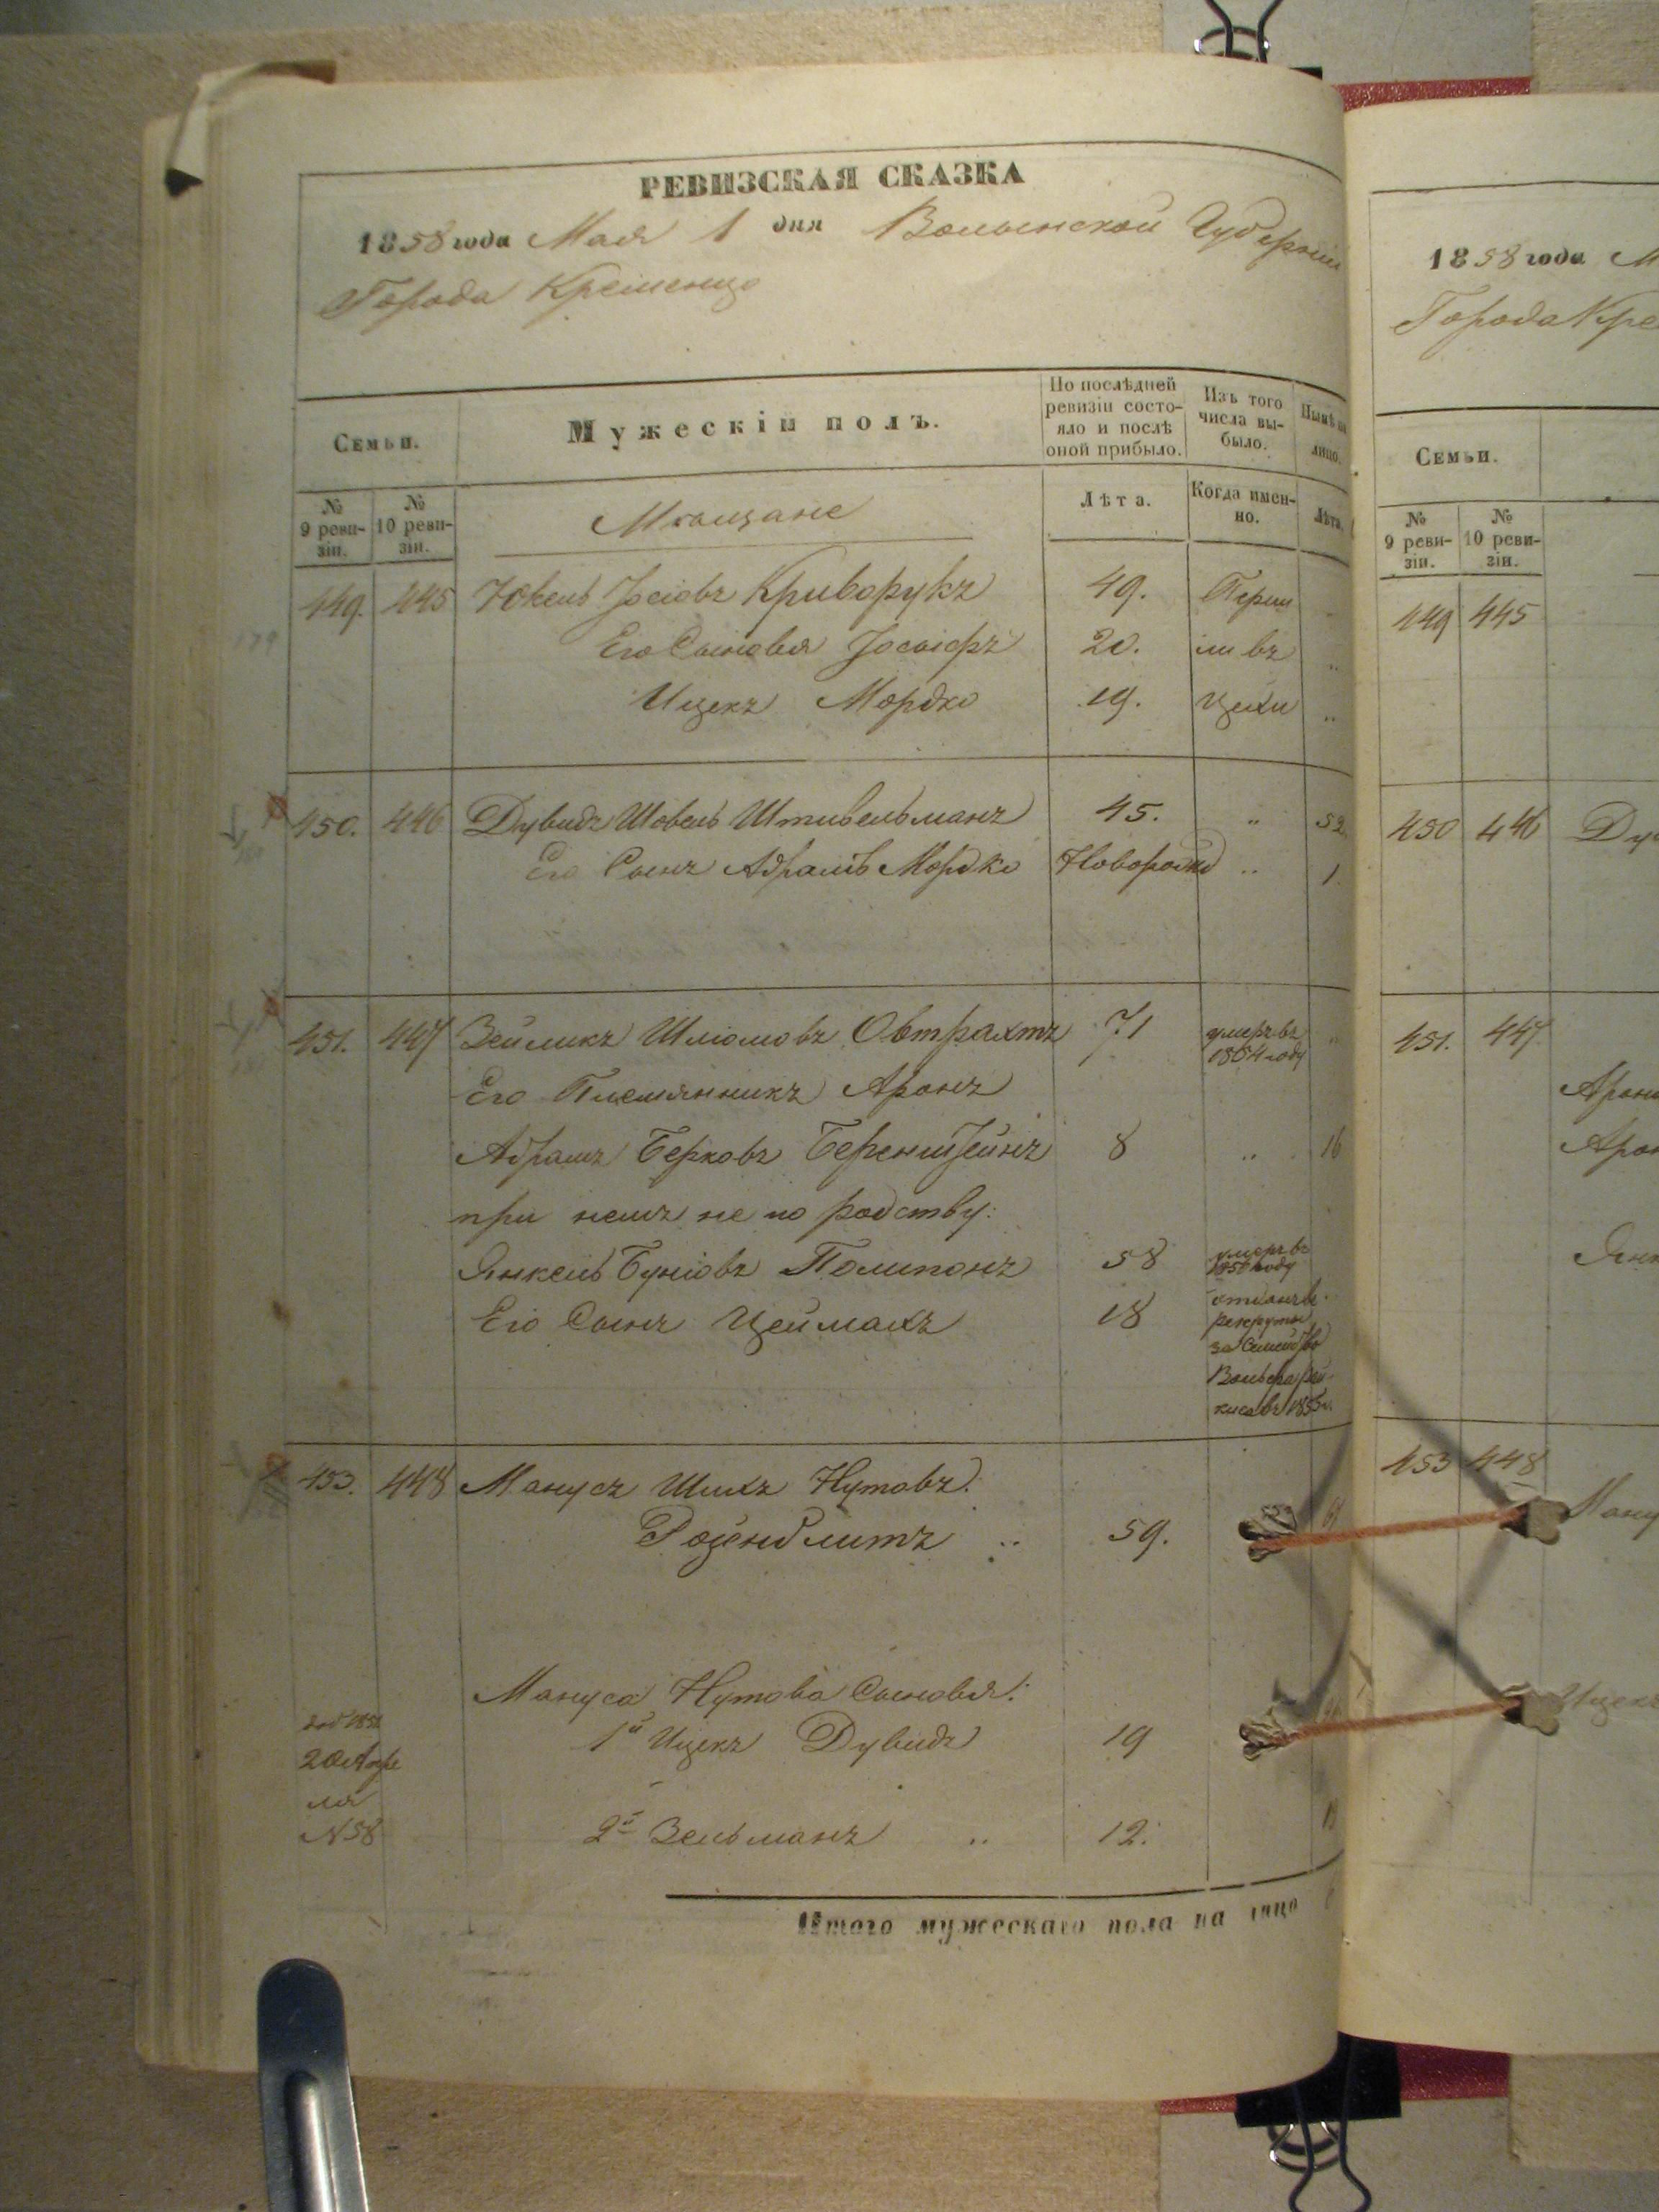 РЕВИЗСКАЯ СКАЗКА
1858 года Мая 1 дня Волынской Губерніи
Города Кременца
Семьи.
Мужескій полъ.
По послѣдней ревизіи состояло и послѣ оной прибыло.
Изъ того числа выбыло.
Нынѣ на лицо.
№ 9 ревизіи.
№ 10 ревизіи.
Мѣщане
Лѣта.
Когда именно.
Лѣта.
449. 445 Іовель Іосіовъ Криворукъ 49. Переш
Его Сыновья Іосьіфъ 20. ли въ "
Ицекъ Мордко 19. Цехи "
450. 446 Дувидъ Шовель Штивельманъ 45. " 52.
Его Сынъ Абрамъ Мордко Новорожд " 1.
451. 447 Зейликъ Шліомовъ Овтрахтъ 71 умеръ въ 1854 году "
Его Племянникъ Аронъ
Абрамъ Берковъ Беренштейнъ 8 " 16
при немъ не по родству:
Янкель Буніовъ Полипонъ 58 умеръ въ 1856 году
Его Сынъ Цеймахъ 18 отданъ в рекруты
за Семейство
Вольфа
въ 1855 г.
453. 448 Манусъ Шихъ Нутовъ
Розенблитъ " 59.
Мануса Нутова Сыновья:
1й Ицекъ Дувидъ 19
20 Апре
ля
N 58
2й Зельманъ " 12.
Итого мужескаго пола на лицо
1858 года М
Города Кре
Семьи.
№ 9 ревизіи.
№ 10 ревизіи.
449 445
450 446 Дув
451. 447
Арон
Арон
Янк
453 448
Ману
Ицек